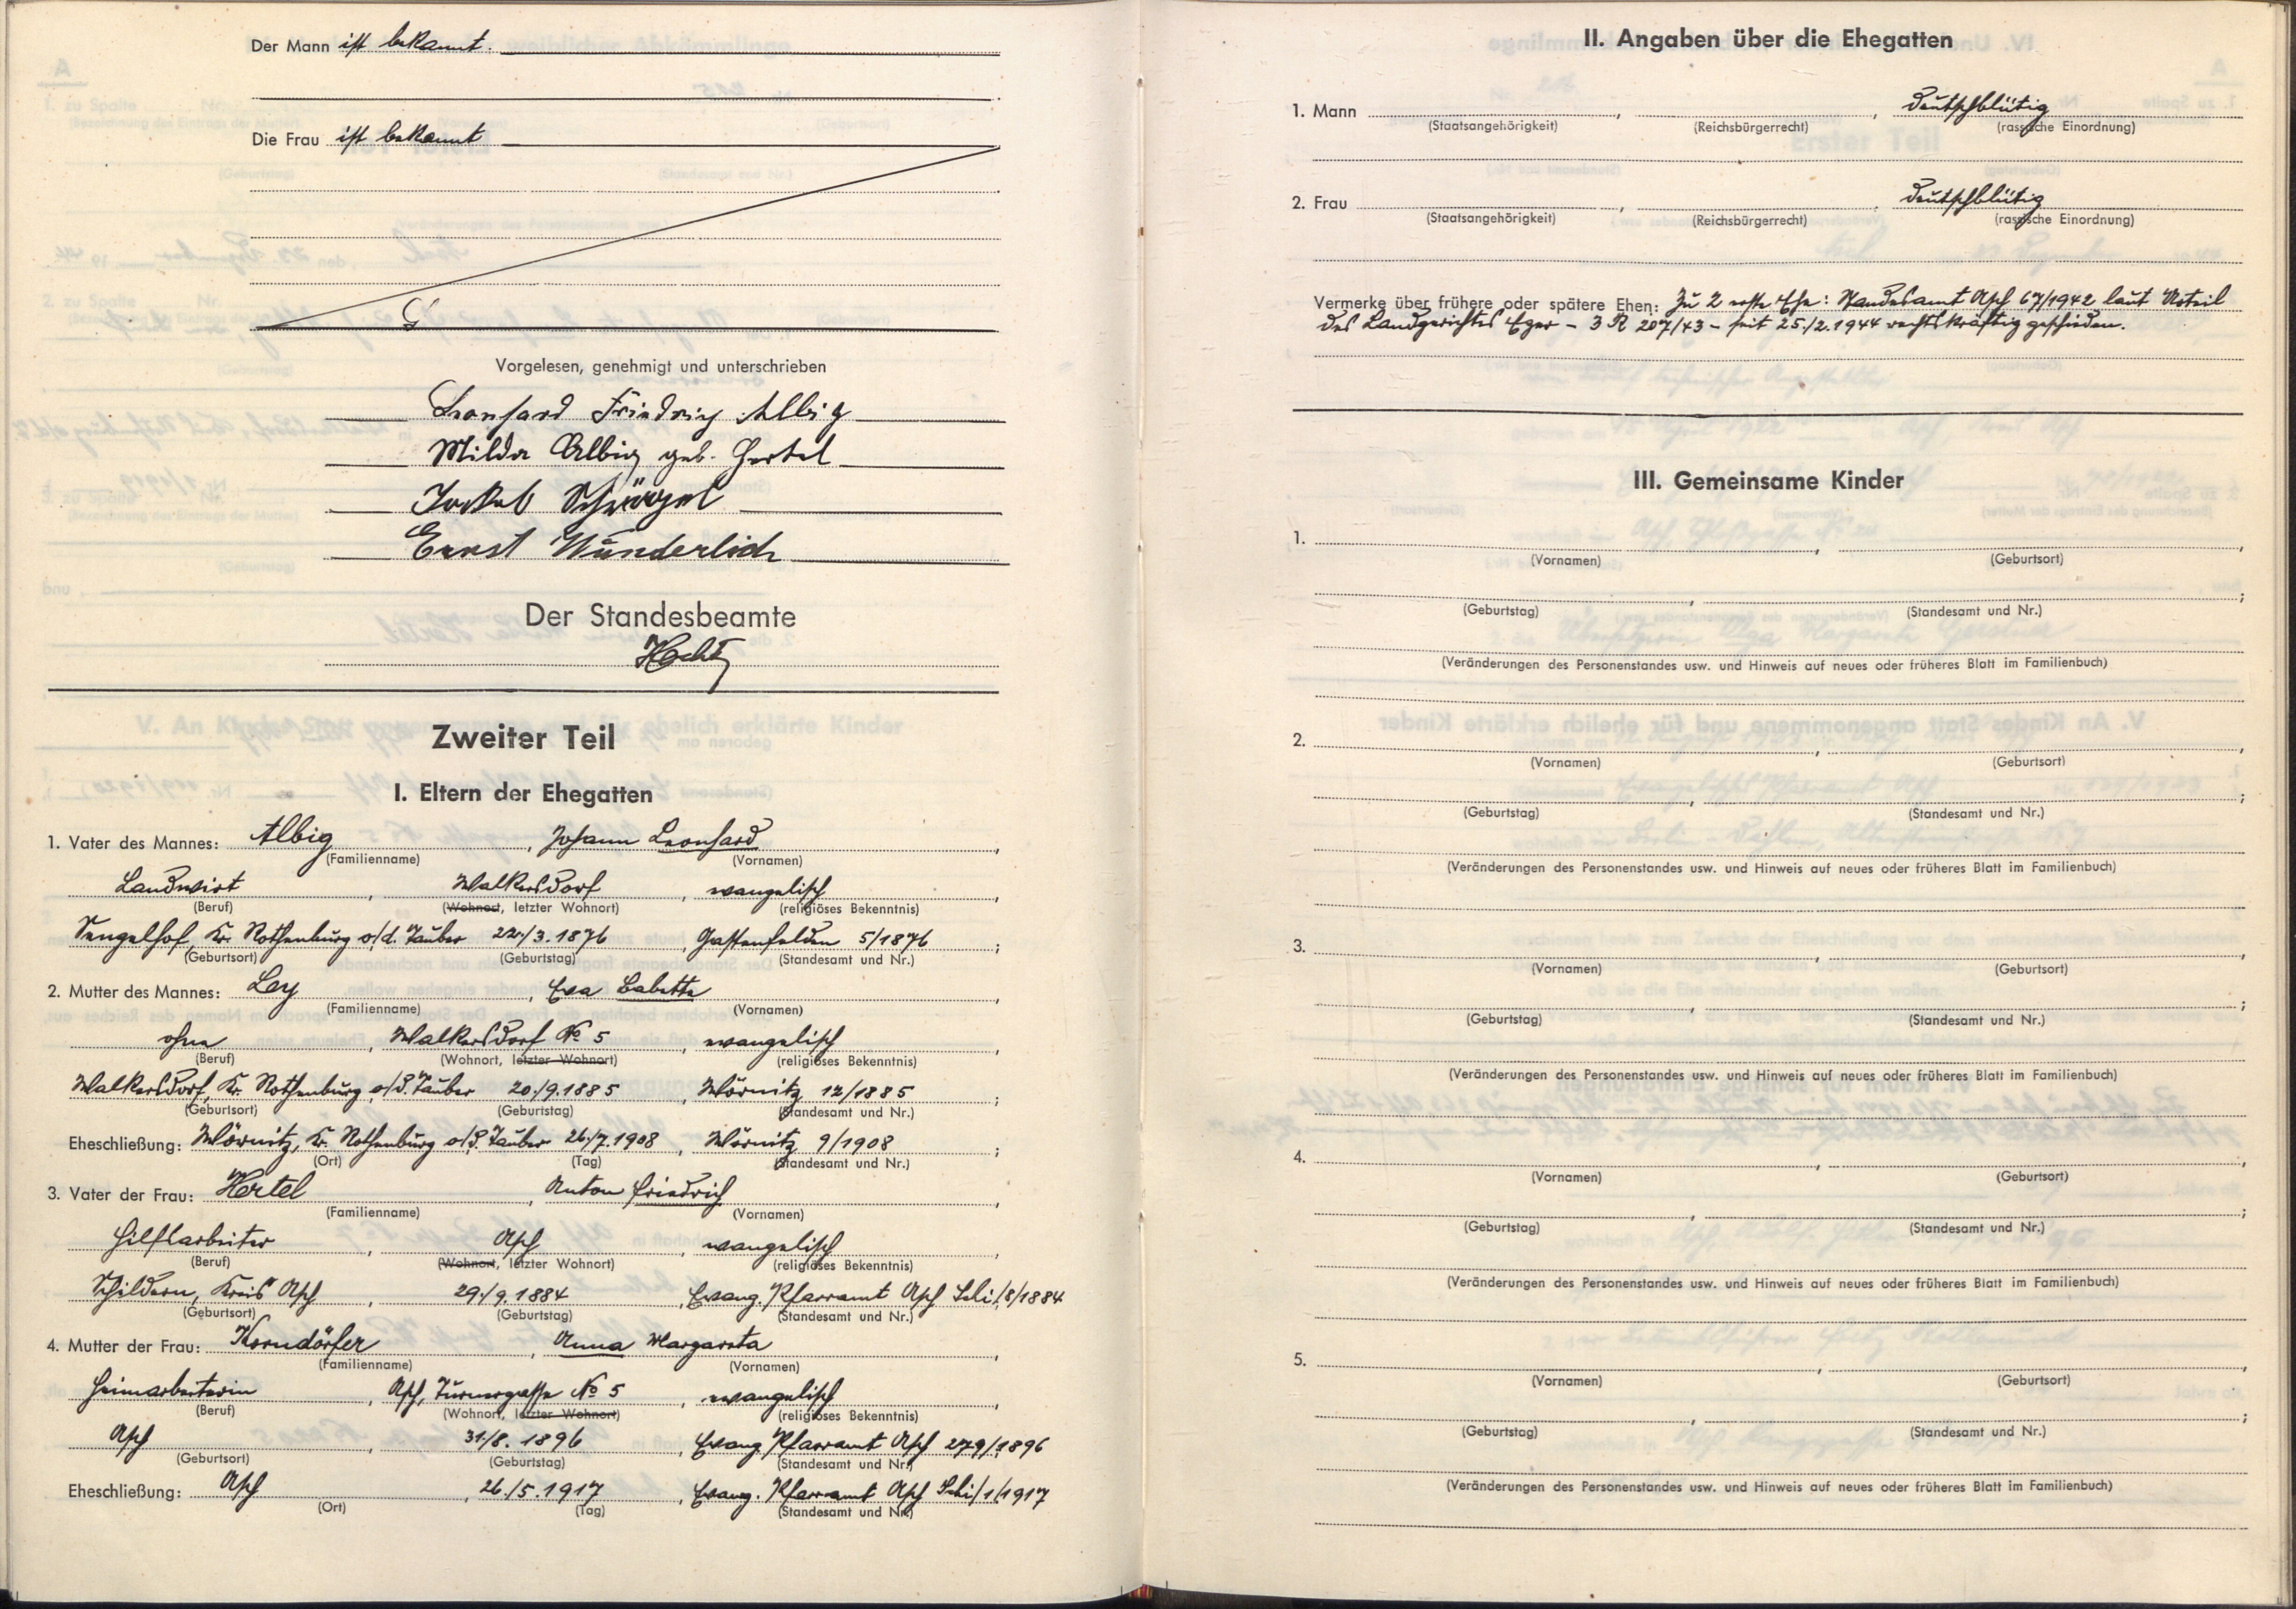 Der Mann ist bekannt.
Die Frau ist bekannt
G
Vorgelesen, genehmigt und unterschrieben
Leonhard Friedrich Albig
Milda Albig geb. Hertel
Jakob
Ernst Wunderlich
Der Standesbeamte
Zweiter Teil
I. Eltern der Ehegatten
1. Vater des Mannes: Albig, Johann Leonhard
(Familienname) (Vornamen)
Landwirt, Walkersdorf, evangelisch,
(Beruf) (Wohnort, letzter Wohnort) (religiöses Bekenntnis)
Kr. Rothenburg o/d. Tauber 22./3.1876, Gastenfelden 5/1876;
(Geburtsort) (Geburtstag) (Standesamt und Nr.)
2. Mutter des Mannes: Ley, Eva Babette,
(Familienname) (Vornamen)
ohne, Walkersdorf No 5, evangelisch,
(Beruf) (Wohnort, letzter Wohnort) (religiöses Bekenntnis)
Walkersdorf, Kr. Rothenburg o/d. Tauber 20./9.1885, Wörnitz 12/1885;
(Geburtsort) (Geburtstag) (Standesamt und Nr.)
Eheschließung: Wörnitz, Kr. Rothenburg o/d. Tauber 26./7.1908, Wörnitz 9/1908;
(Ort) (Tag) (Standesamt und Nr.)
3. Vater der Frau: Hertel, Anton Friedrich,
(Familienname) (Vornamen)
Hilfsarbeiter, Asch, evangelisch,
(Beruf) (Wohnort, letzter Wohnort) (religiöses Bekenntnis)
Schildern, Kreis Asch, 29./9.1884, Evang. Pfarramt Asch Schi/8/1884
(Geburtsort) (Geburtstag) (Standesamt und Nr.)
4. Mutter der Frau: Korndörfer, Anna Margareta,
(Familienname) (Vornamen)
Heimarbeiterin, Asch, Turnergasse No 5, evangelisch,
(Beruf) (Wohnort, letzter Wohnort) (religiöses Bekenntnis)
Asch, 31./8.1896, Evang. Pfarramt Asch 279/1896
(Geburtsort) (Geburtstag) (Standesamt und Nr.)
Eheschließung: Asch, 26./5.1917, Evang. Pfarramt Asch Schi/1/1917
(Ort) (Tag) (Standesamt und Nr.)
II. Angaben über die Ehegatten
1. Mann , , deutschblütig
(Staatsangehörigkeit) (Reichsbürgerrecht) (rassische Einordnung)
2. Frau , , deutschblütig
(Staatsangehörigkeit) (Reichsbürgerrecht) (rassische Einordnung)
Vermerke über frühere oder spätere Ehen: Zu 2 erste Ehe: Standesamt Asch 67/1942 laut Urteil
des Landgerichtes Eger - 3 R 207/43 - seit 25./2.1944 rechtskräftig geschieden.
III. Gemeinsame Kinder
1. , ,
(Vornamen) (Geburtsort)
, ;
(Geburtstag) (Standesamt und Nr.)
(Veränderungen des Personenstandes usw. und Hinweis auf neues oder früheres Blatt im Familienbuch)
2. , ,
(Vornamen) (Geburtsort)
, ;
(Geburtstag) (Standesamt und Nr.)
(Veränderungen des Personenstandes usw. und Hinweis auf neues oder früheres Blatt im Familienbuch)
3. , ,
(Vornamen) (Geburtsort)
, ;
(Geburtstag) (Standesamt und Nr.)
(Veränderungen des Personenstandes usw. und Hinweis auf neues oder früheres Blatt im Familienbuch)
4. , ,
(Vornamen) (Geburtsort)
, ;
(Geburtstag) (Standesamt und Nr.)
(Veränderungen des Personenstandes usw. und Hinweis auf neues oder früheres Blatt im Familienbuch)
5. , ,
(Vornamen) (Geburtsort)
, ;
(Geburtstag) (Standesamt und Nr.)
(Veränderungen des Personenstandes usw. und Hinweis auf neues oder früheres Blatt im Familienbuch)